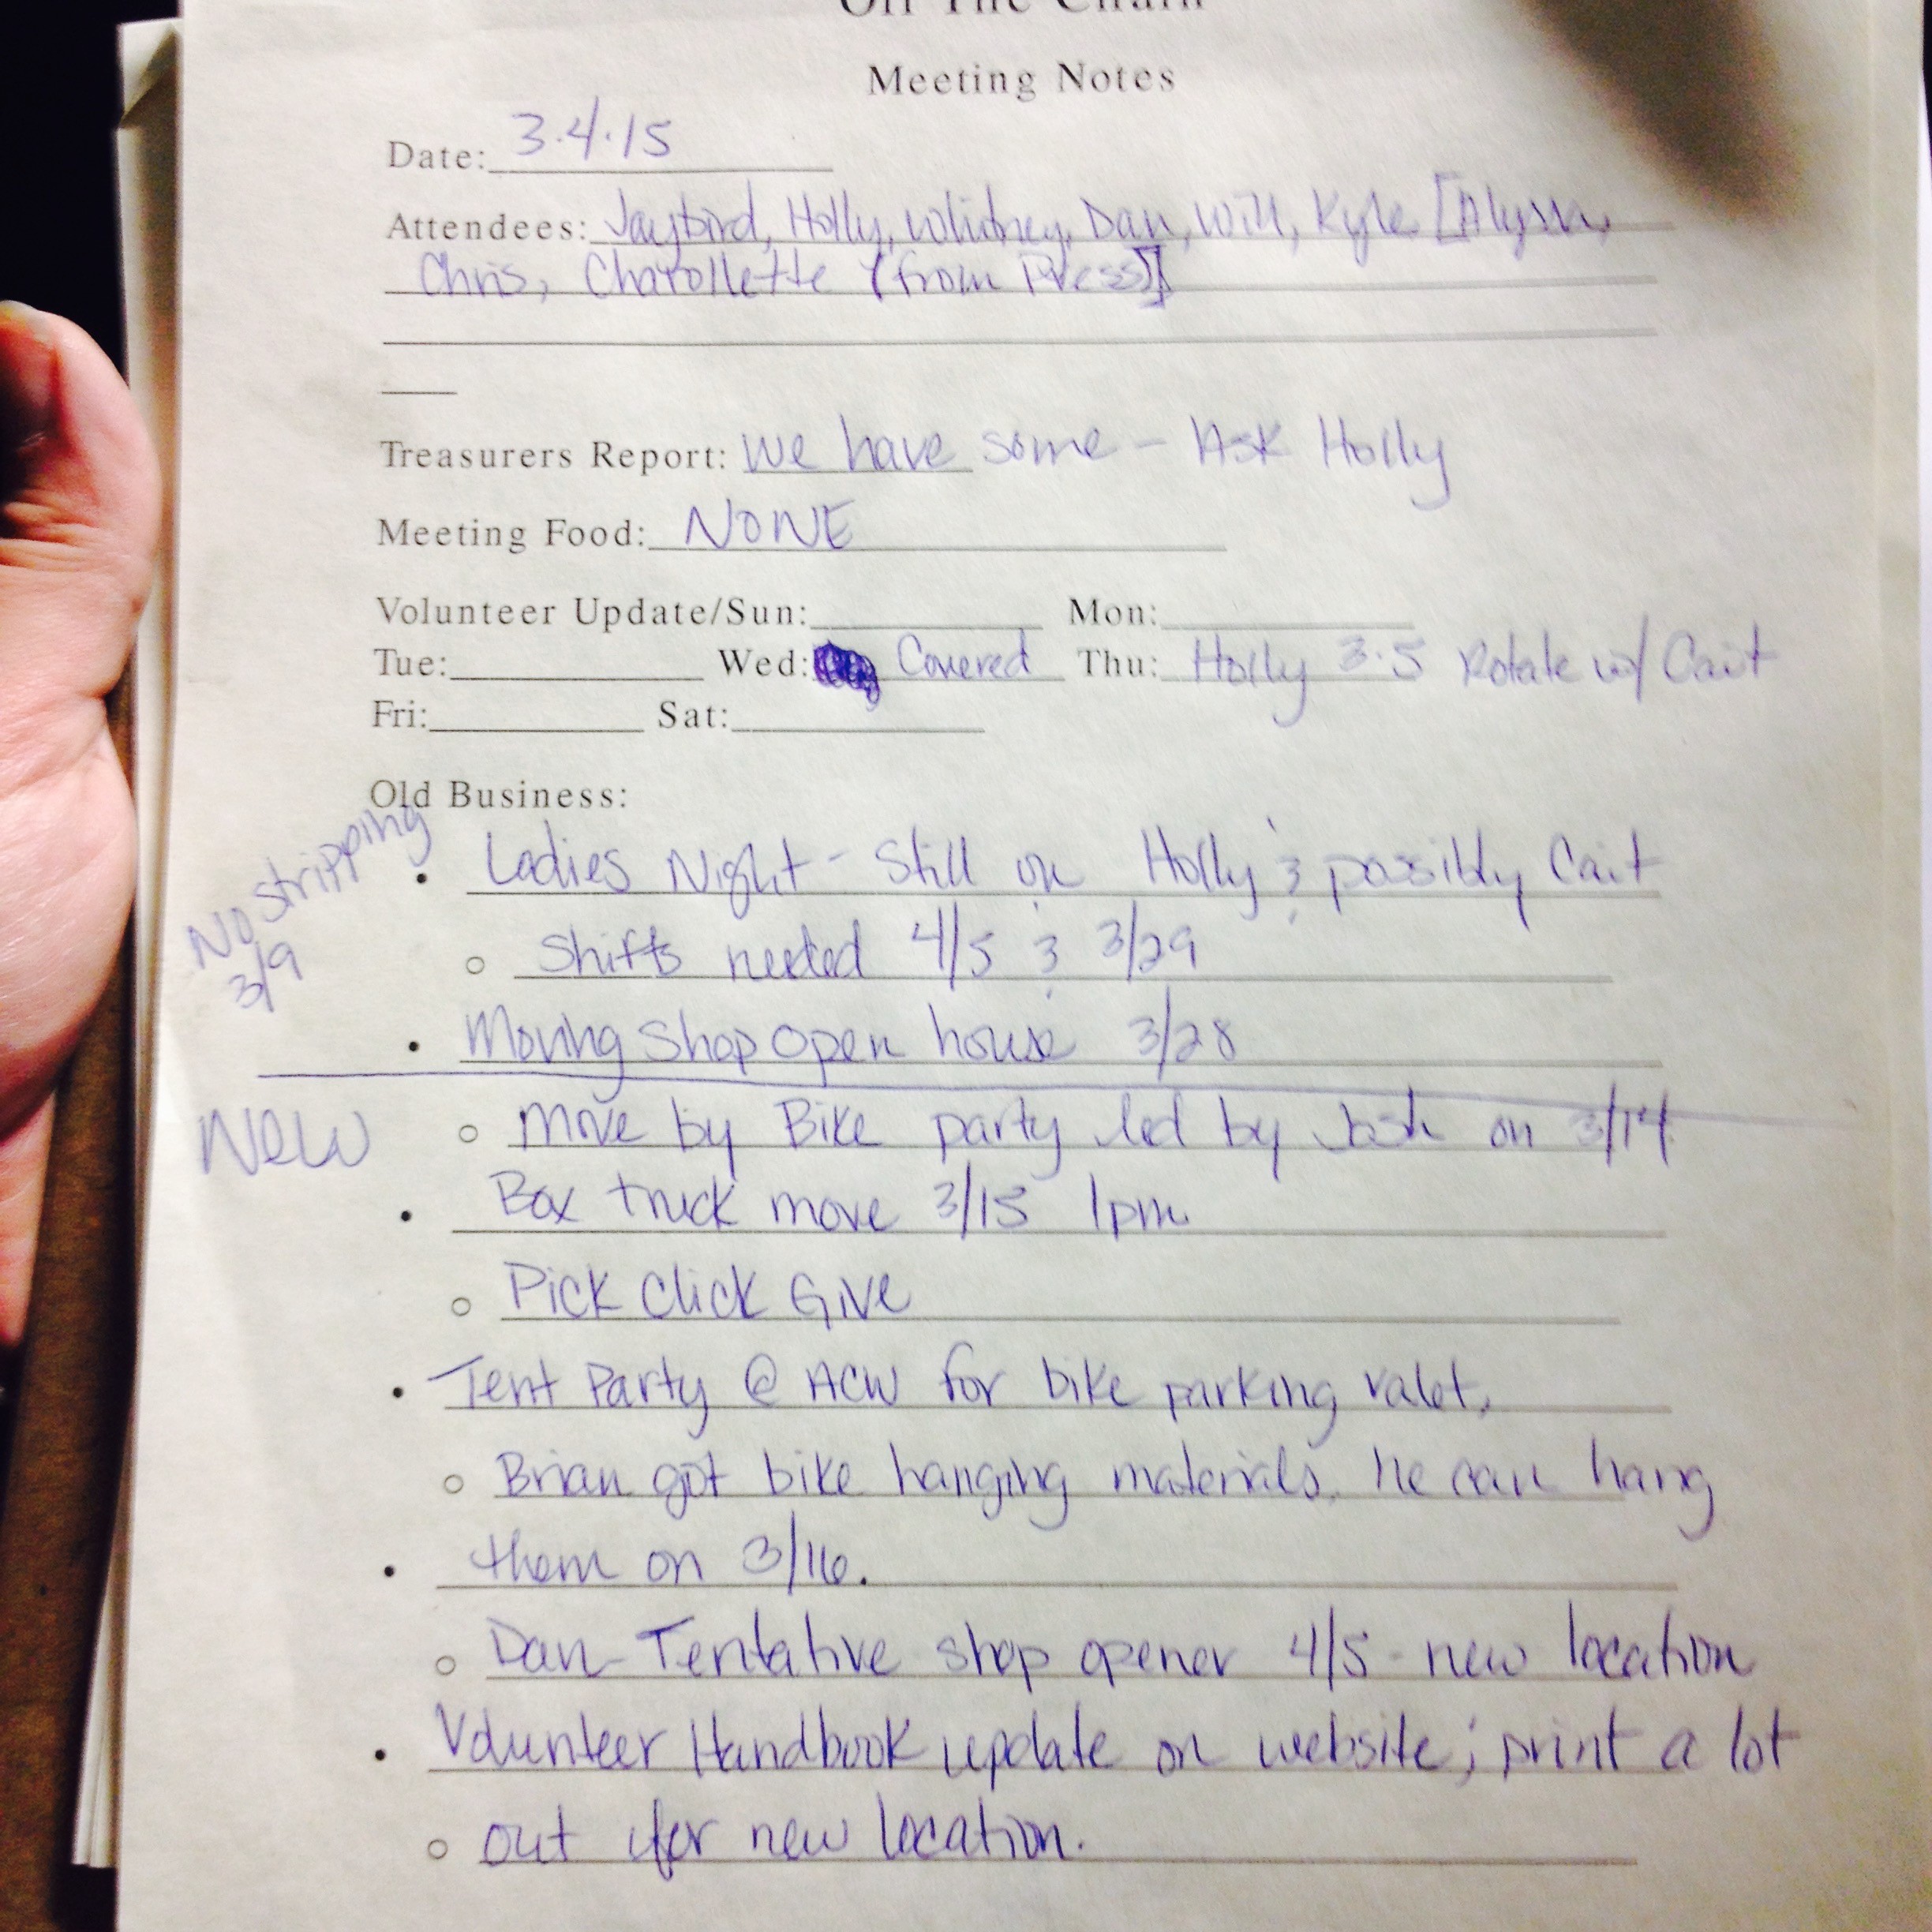 Off The Chain
Meeting Notes
Date: 3.4.15
Attendees: Jaybird, Holly, Whitney, Dan, Will, Kyle [Alyssa,
Chris, Charollette (from Press)]
Treasurers Report: We have some - Ask Holly
Meeting Food: NONE
Volunteer Update/Sun: Mon:
Tue: Wed: Covered Thu: Holly 3.5 Rotate w/ Cait
Fri: Sat:
Old Business:
No stripping
3/9
• Ladies Night - Still on Holly & possibly Cait
○ Shifts needed 4/5 & 3/29
• Moving Shop open house 3/28
New
○ Move by Bike party led by Josh on 3/14
• Box truck move 3/15 1pm
○ Pick Click Give
• Tent Party @ ACW for bike parking valet,
○ Brian got bike hanging materials. He can hang
• them on 3/16.
○ Dan - Tentative shop opener 4/5 - new location
• Volunteer Handbook update on website; print a lot
○ out for new location.